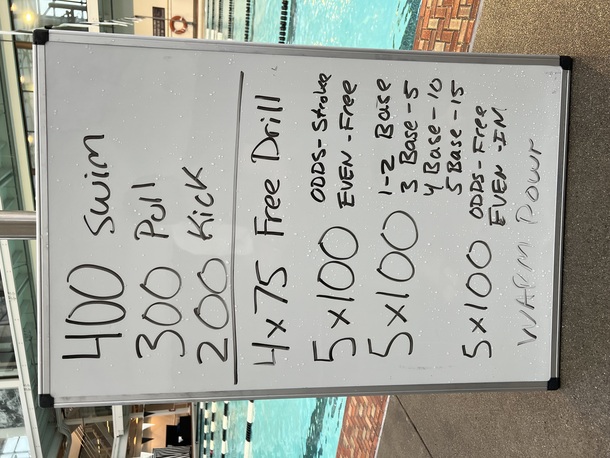 400 Swim
300 Pull
200 Kick
4x75 Free Drill
5x100 ODDS-Stroke
EVEN-Free
5x100 1-2 Base
3 Base-5
4 Base-10
5 Base-15
5x100 ODDS-Free
EVEN-IM
WARM DOWN